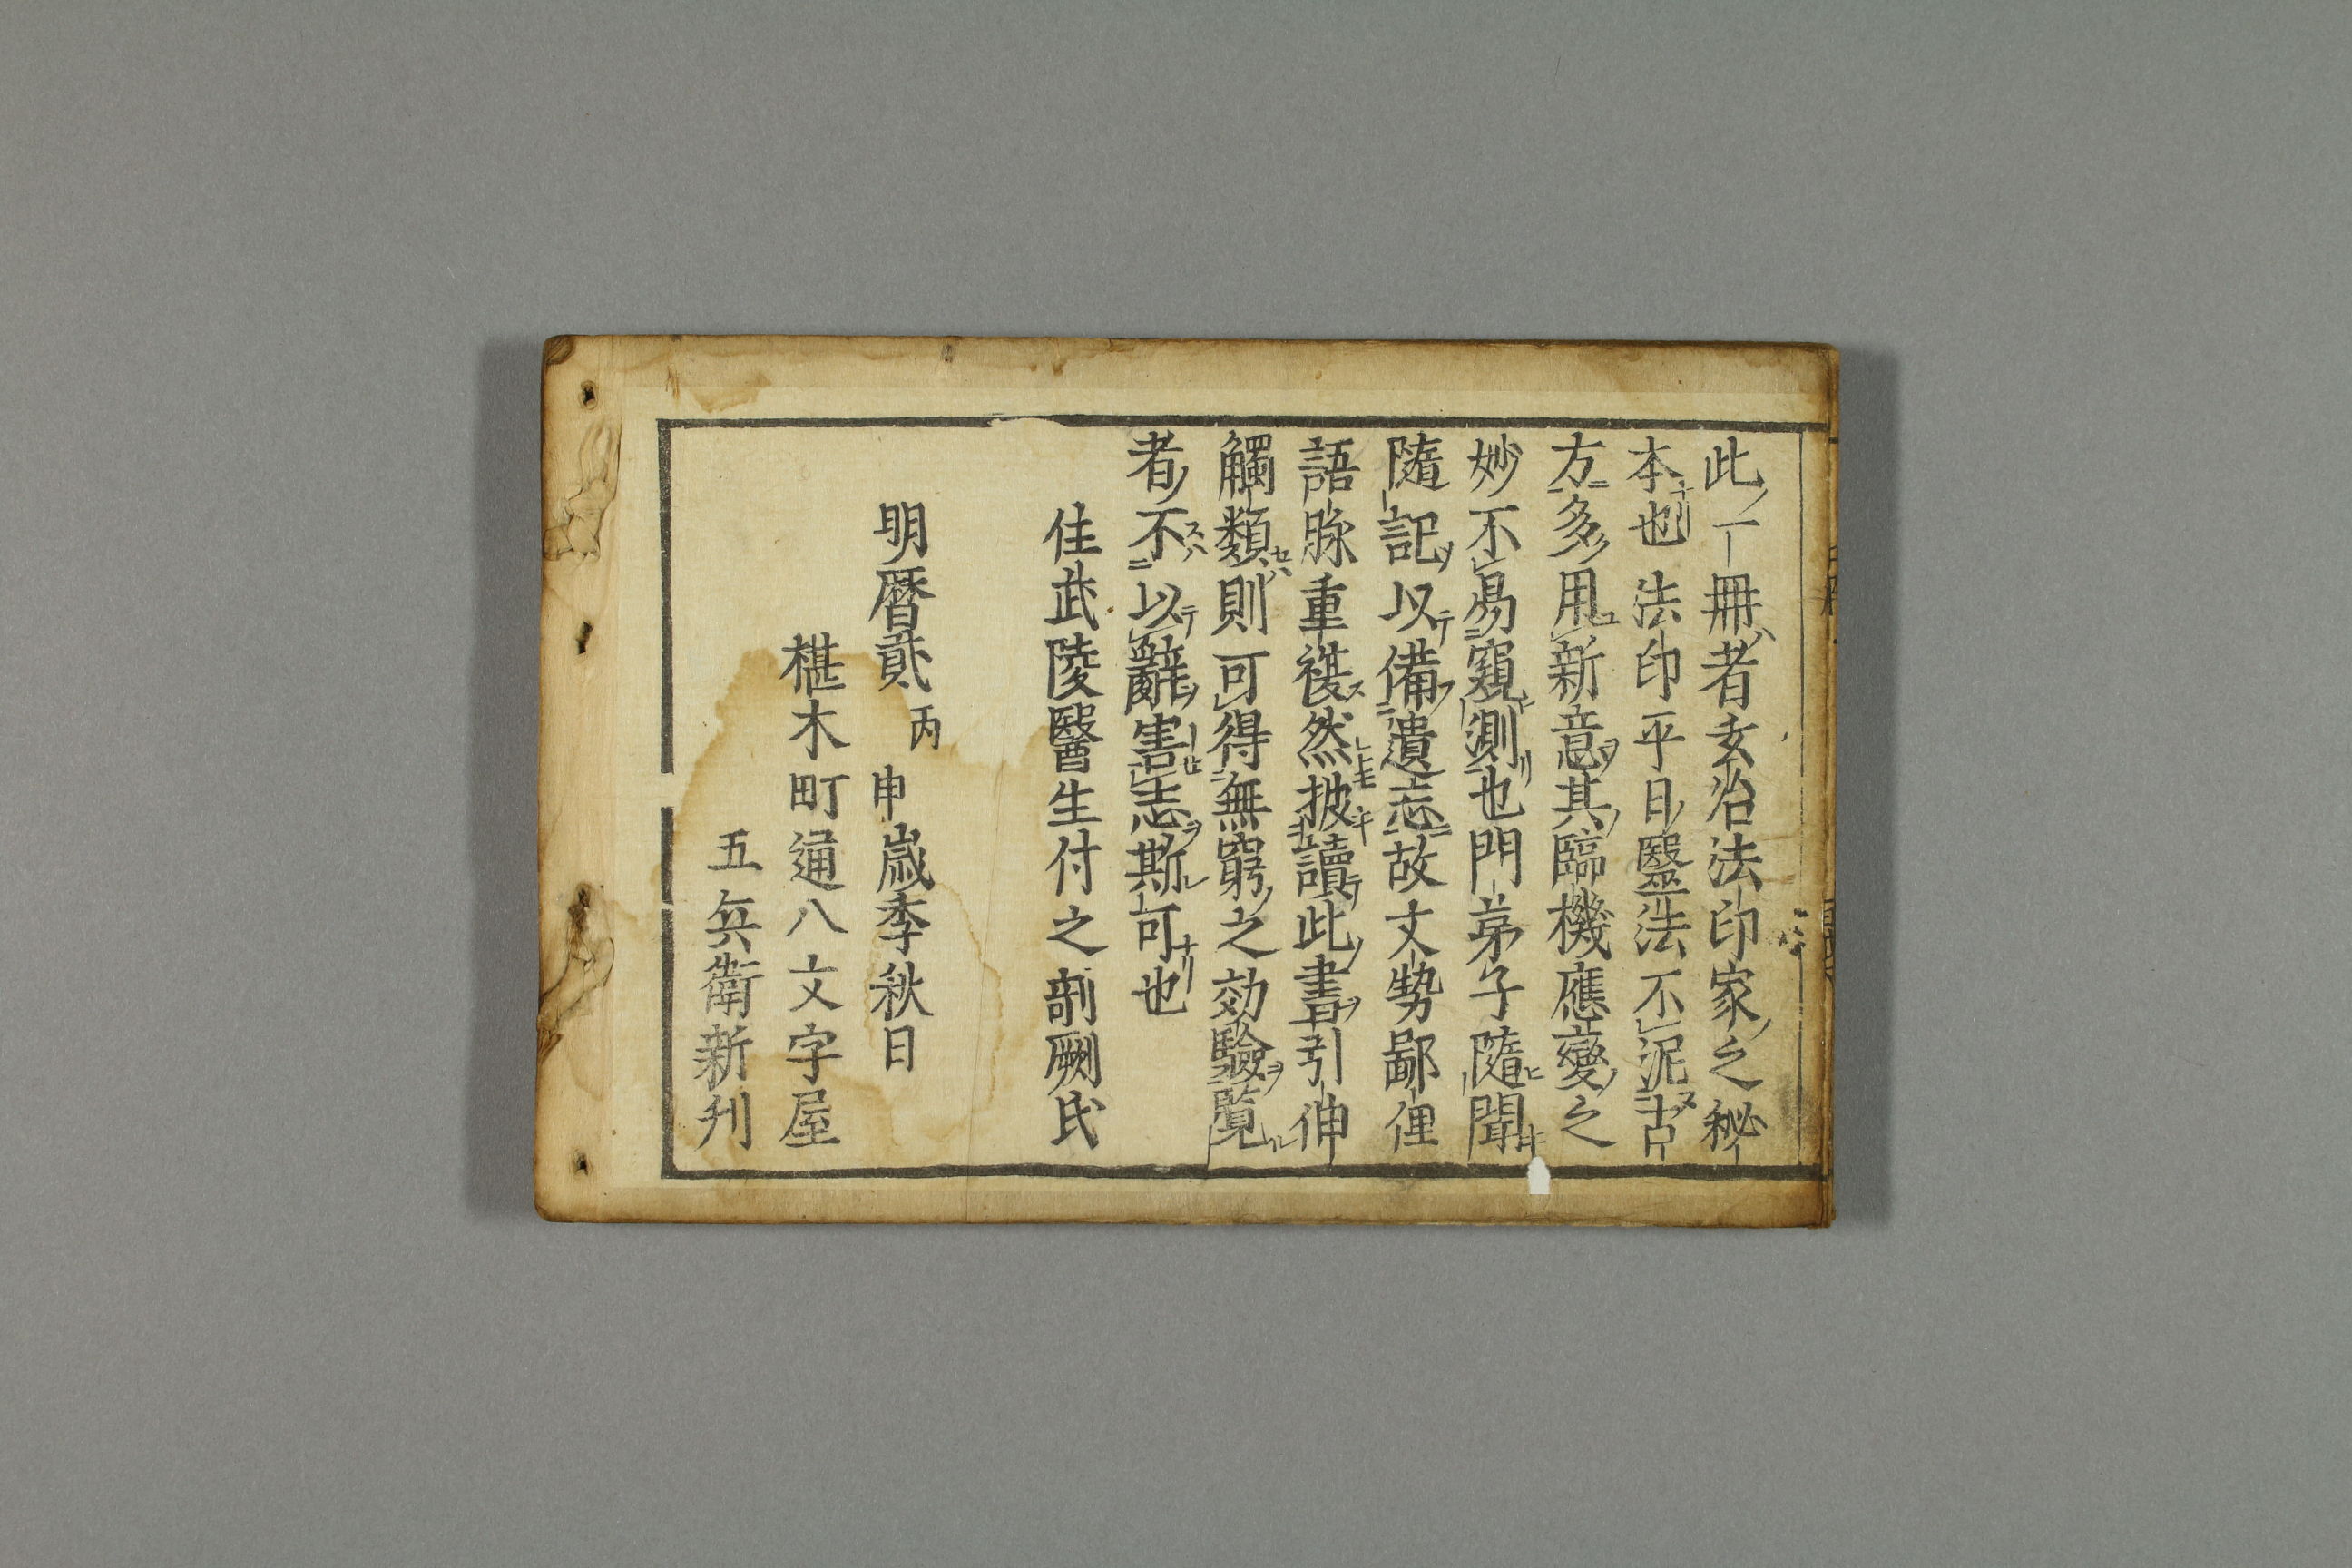 此一冊者玄治法印家之秘
本也法印平日毉法不泥古
方多用新意其臨機應變之
妙不易窺測也門弟子隨聞
隨記以備遺忘故文勢鄙俚
語脉重複然披讀此書引伸
觸類則可得無窮之効驗覧
者不以辭害志斯可也
住武陵醫生付之剞劂氏
明暦貳丙申歳季秋日
椹木町通八文字屋
五兵衛新刋